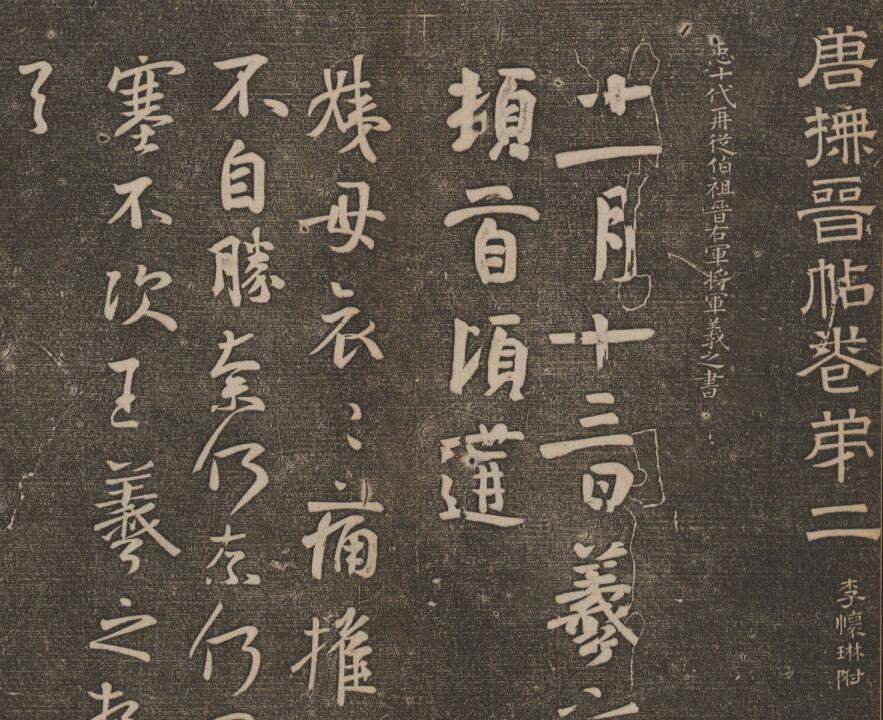 唐撫晉帖卷弟二
李懷琳附
臣十代再從伯祖晉右軍將軍羲之書
十一月十三日羲之
頓首頃遘
姨母哀〻痛摧
不自勝奈何奈何
塞不次王羲之